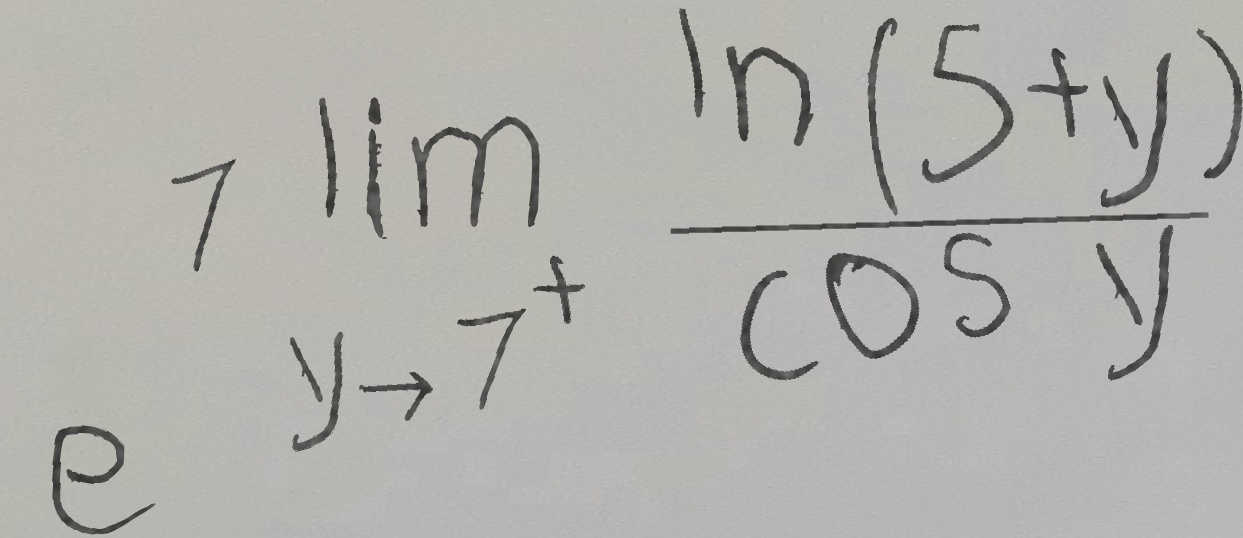 e^{7 \lim_{y \to 7^+} \frac{\ln(5+y)}{\cos y}}